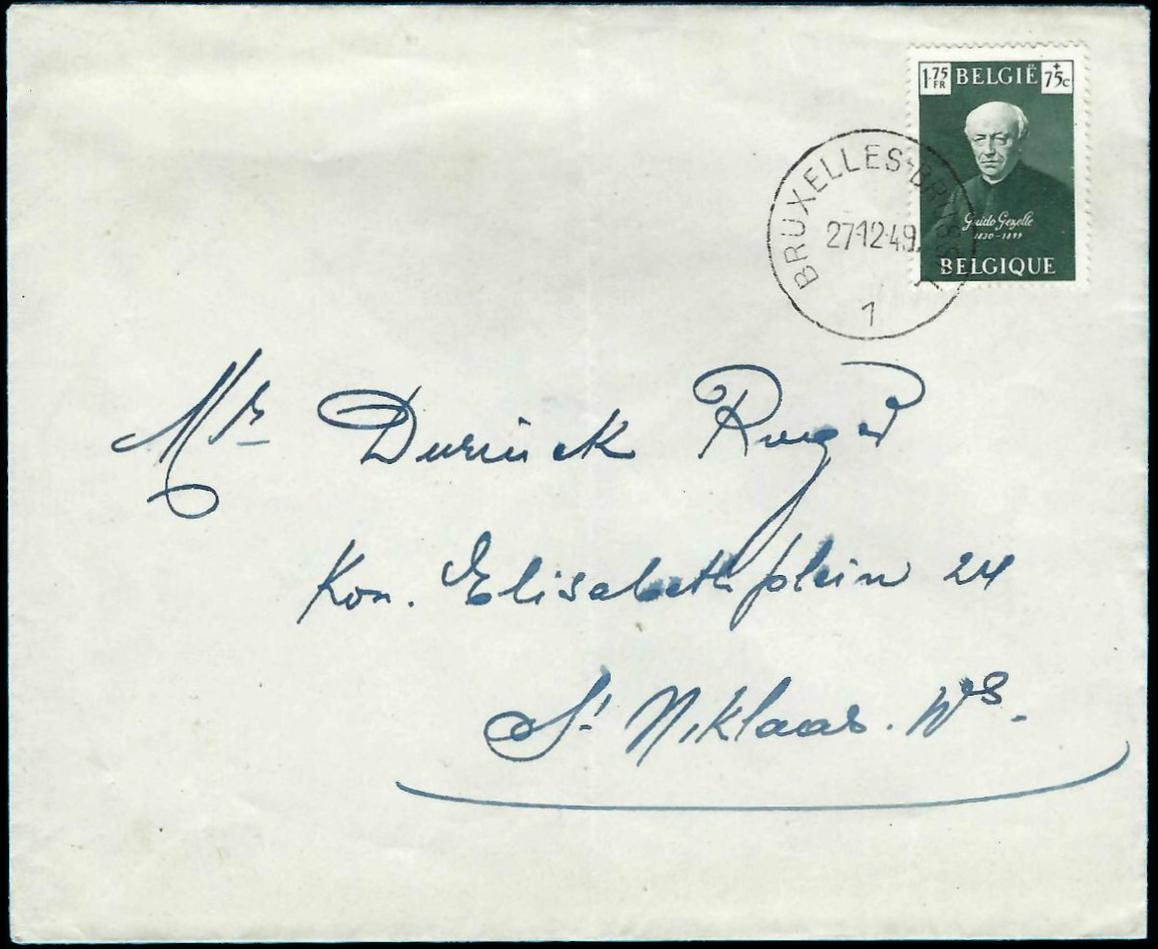 1.75 FR BELGIË +75c
Guido Gezelle
1830-1899
BELGIQUE
BRUXELLES-BRUSSEL
27-12-49
1
Mr
Kon. Elisabethplein 24
St Niklaas. Ws.